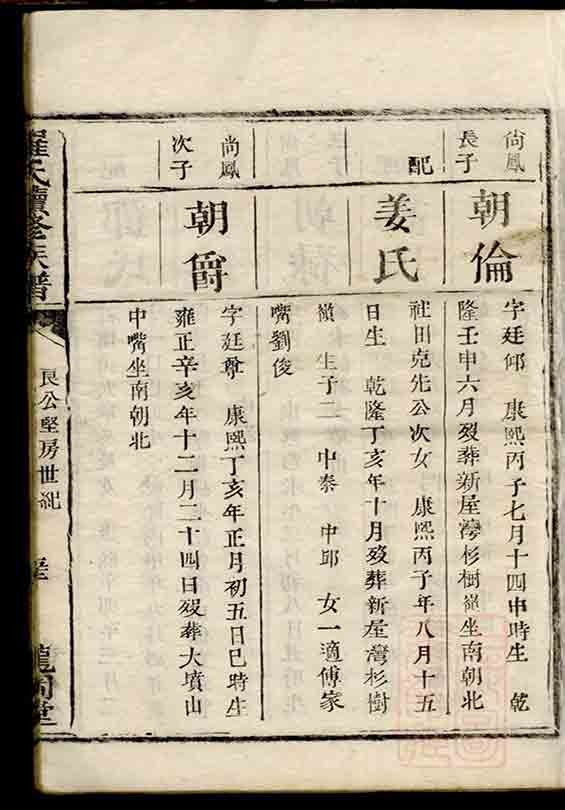 尚鳳
長子
朝倫
字廷仰 康熙丙子七月十四申時生 乾
隆壬申六月歿葬新屋灣杉樹嶺坐南朝北
配
姜氏
社田克先公次女 康熙丙子年八月十五
日生 乾隆丁亥年十月歿葬新屋灣杉樹
嶺 生子二 中秦 中邱 女一適傅家
嘴劉俊
尚鳳
次子
朝爵
字廷尊 康熙丁亥年正月初五日巳時生
雍正辛亥年十二月二十四日歿葬大墳山
中嘴坐南朝北
羅氏續修族譜
良公堅房世紀